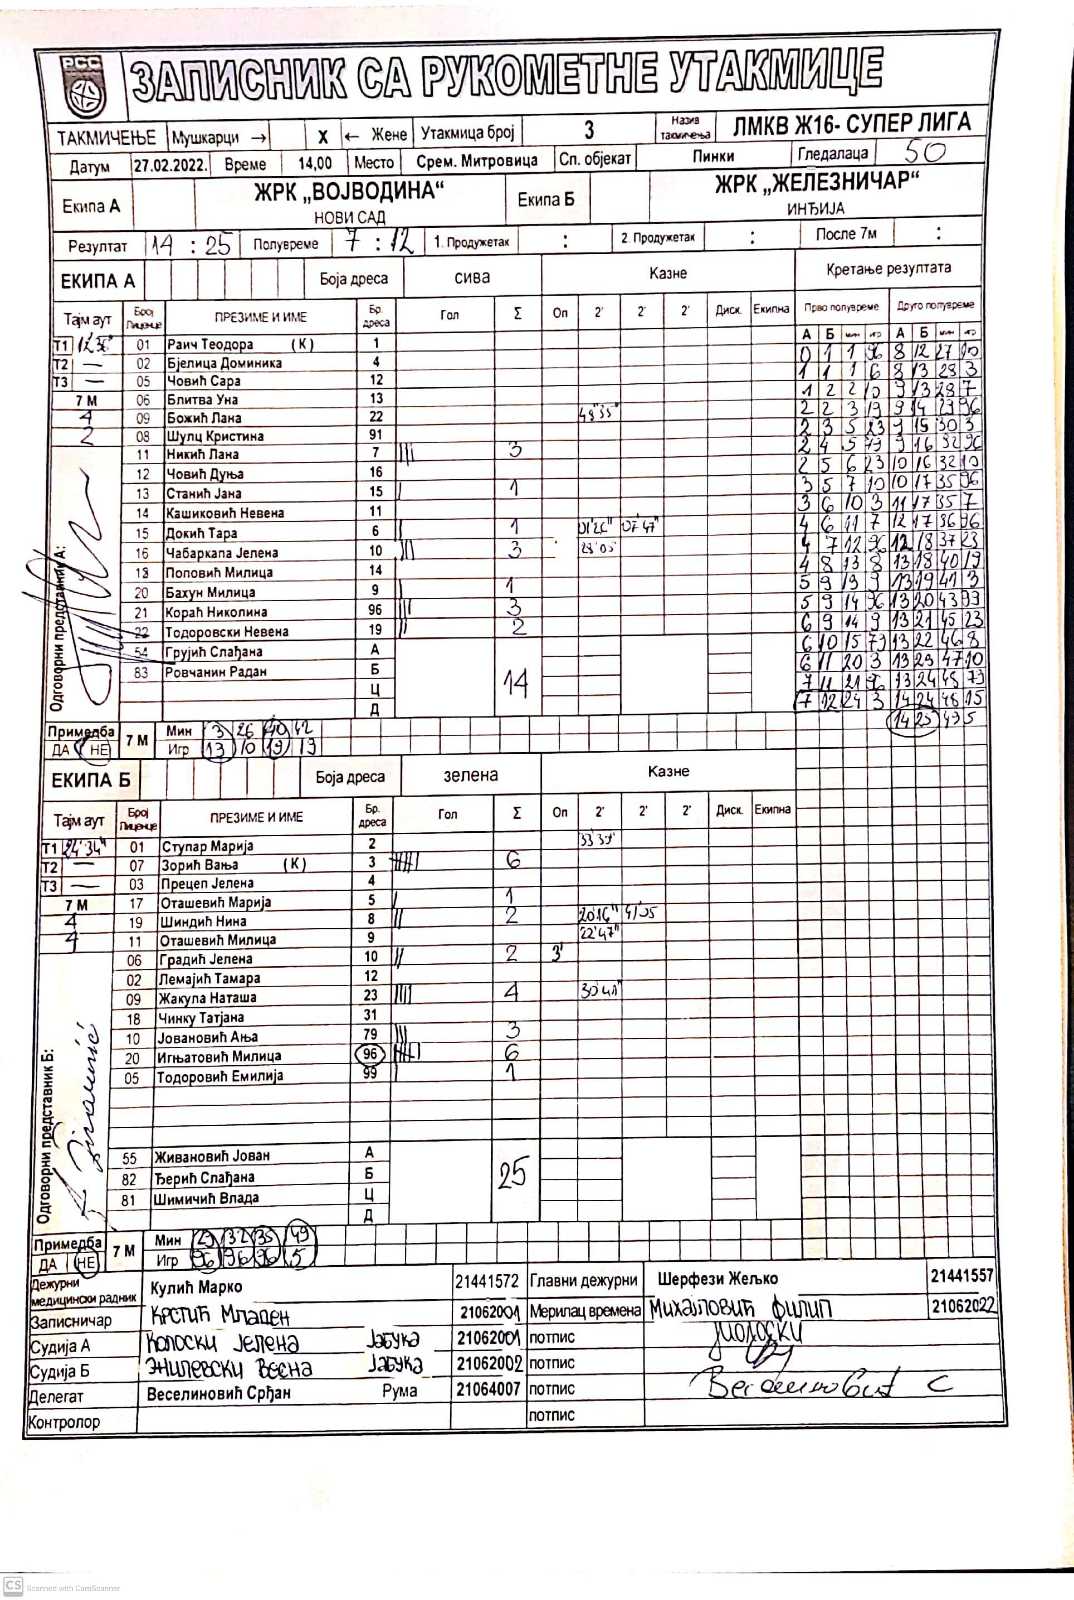 РСС
ЗАПИСНИК СА РУКОМЕТНЕ УТАКМИЦЕ
ТАКМИЧЕЊЕ Мушкарци → X ← Жене Утакмица број 3 Назив такмичења ЛМКВ Ж16- СУПЕР ЛИГА
Датум 27.02.2022. Време 14,00 Место Срем. Митровица Сп. објекат Пинки Гледалаца 50
Екипа А ЖРК „ВОЈВОДИНА“ НОВИ САД Екипа Б ЖРК „ЖЕЛЕЗНИЧАР“ ИНЂИЈА
Резултат 14 : 25 Полувреме 7 : 12 1. Продужетак : 2. Продужетак : После 7м :
ЕКИПА А Боја дреса сива Казне Кретање резултата
Тајм аут Број Лиценце ПРЕЗИМЕ И ИМЕ Бр. дреса Гол Σ Оп 2' 2' 2' Диск. Екипна Прво полувреме Друго полувреме
А Б мин игр А Б мин игр
Т1 01 Раич Теодора (К) 1 0 1 1 96 8 12 27 10
Т2 — 02 Бјелица Доминика 4 1 1 1 6 8 13 28 3
Т3 — 05 Човић Сара 12 1 2 2 10 9 13 28 7
7 М 06 Блитва Уна 13 2 2 3 19 9 14 29 96
4 09 Божић Лана 22 48'35" 2 3 5 23 9 15 30 3
2 08 Шулц Кристина 91 2 4 5 79 9 16 32 96
11 Никић Лана 7 ||| 3 2 5 6 23 10 16 32 10
12 Човић Дуња 16 3 5 7 10 10 17 35 96
13 Станић Јана 15 | 1 3 6 10 3 11 17 35 7
14 Кашиковић Невена 11 4 6 11 7 12 17 36 96
15 Докић Тара 6 | 1 07'47" 4 7 12 96 12 18 37 23
16 Чабаркапа Јелена 10 ||| 3 28'05" 4 8 13 8 13 18 40 19
18 Поповић Милица 14 5 9 13 9 13 19 41 3
20 Бахун Милица 9 | 1 5 9 14 96 13 20 43 99
21 Кораћ Николина 96 ||| 3 6 9 14 9 13 21 45 23
22 Тодоровски Невена 19 || 2 6 10 15 79 13 22 46 8
54 Грујић Слађана А 6 11 20 3 13 23 47 10
83 Ровчанин Радан Б 14 7 11 21 96 13 24 48 79
Ц 7 12 24 3 14 24 48 15
Д 14 25 49 5
Одговорни представник А:
Примедба ДА НЕ 7 М Мин 3 26 40 42
Игр 13 10 19 19
ЕКИПА Б Боја дреса зелена Казне
Тајм аут Број Лиценце ПРЕЗИМЕ И ИМЕ Бр. дреса Гол Σ Оп 2' 2' 2' Диск. Екипна
Т1 24'34" 01 Ступар Марија 2 33'37"
Т2 — 07 Зорић Вања (К) 3 6
Т3 — 03 Прецеп Јелена 4
7 М 17 Оташевић Марија 5 | 1
4 19 Шиндић Нина 8 || 2 20'16" 41'05
4 11 Оташевић Милица 9 22'47"
06 Градић Јелена 10 || 2 3'
02 Лемајић Тамара 12
09 Жакула Наташа 23 |||| 4 30'41"
18 Чинку Татјана 31
10 Јовановић Ања 79 ||| 3
20 Игњатовић Милица 96 6
05 Тодоровић Емилија 99 | 1
55 Живановић Јован А
82 Ђерић Слађана Б 25
81 Шимичић Влада Ц
Д
Одговорни представник Б:
Примедба ДА НЕ 7 М Мин 29 32 35 49
Игр 96 96 96 5
Дежурни медицински радник Кулић Марко 21441572 Главни дежурни Шерфези Жељко 21441557
Записничар Крстић Младен 21062004 Мерилац времена Михајловић Филип 21062022
Судија А Колоски Јелена Јабука 21062001 потпис
Судија Б Јабука 21062002 потпис
Делегат Веселиновић Срђан Рума 21064007 потпис Веселиновић С
Контролор потпис
CS Scanned with CamScanner